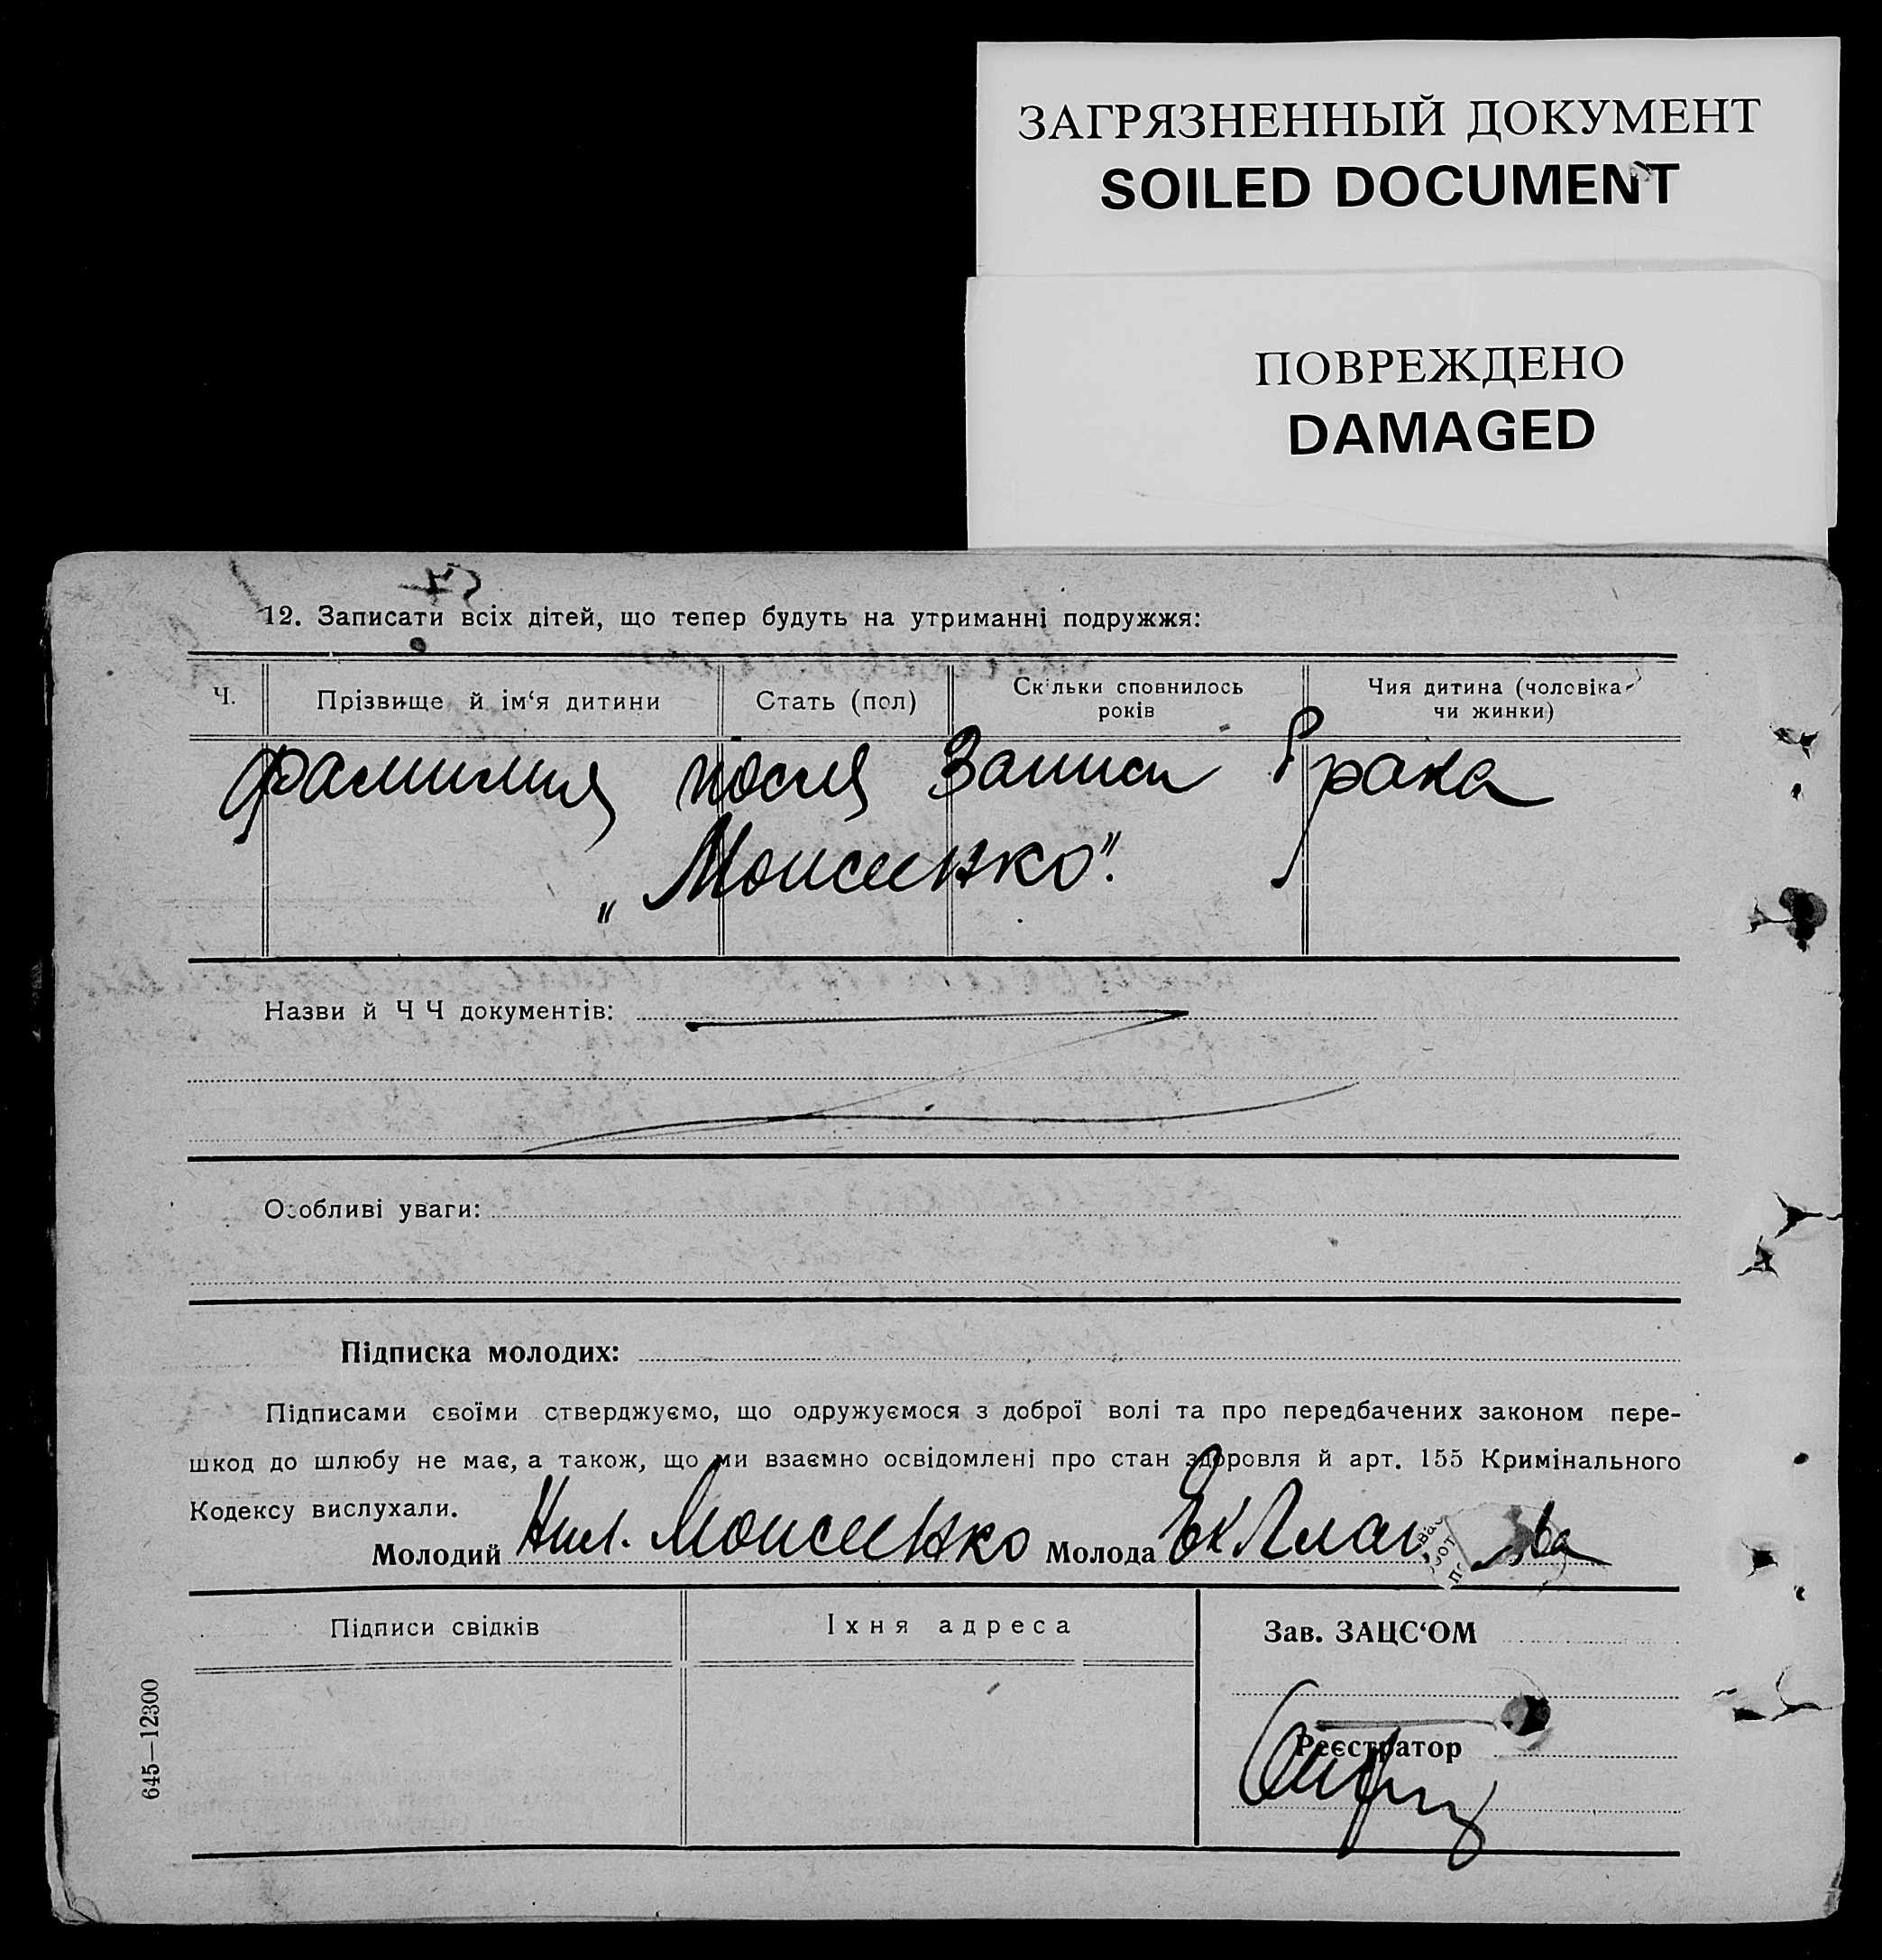 ЗАГРЯЗНЕННЫЙ ДОКУМЕНТ
SOILED DOCUMENT
ПОВРЕЖДЕНО
DAMAGED
12. Записати всіх дітей, що тепер будуть на утриманні подружжя:
Ч. Прізвище й ім‘я дитини Стать (пол) Скільки сповнилось років Чия дитина (чоловіка чи жинки)
фамилия посля Записи брака
„Моисеенко".
Назви й Ч Ч документів:
Особливі уваги:
Підписка молодих:
Підписами своїми стверджуємо, що одружуємося з доброї волі та про передбачених законом пере-
шкод до шлюбу не має, а також, що ми взаємно освідомлені про стан здоровля й арт. 155 Кримінального
Кодексу вислухали.
Молодий Моисеенко Молода Ек
Підписи свідків Їхня адреса Зав. ЗАЦС‘ОМ
Реєстратор
645—12300